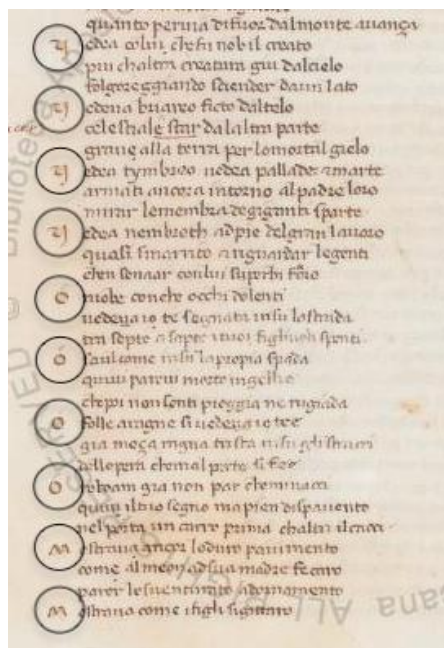 quanto per via difuor dalmonte auança
Vedea colui chefu nobil creato
piu chaltra creatura giu dalcielo
folgoreggiando scender daun lato
Vedeua briareo ficto daltelo
celestiale star dalaltra parte
graue alla terra per lomortal gielo
Vedea tymbreo uedea pallade marte
armati ancora intorno al padre loro
mirar lemembra degiganti sparte
Vedea nembroth apie delgran lauoro
quasi smarrito a riguardar legenti
chen senaar conlui superbi foro
O niobe conche occhi dolenti
uedeua io te segnata insu lastrada
tra septe e septe tuoi figliuoli spenti
O saul come insu lapropia spada
quiui pareui morto ingelboe
chepoi non senti pioggia ne rugiada
O folle aragne si uedeua io te
gia meça ragna trista insu gli stracci
dellopera chemal perte si fee
O roboam gia non par cheminacci
quiui iltuo segno ma pien dispauento
nel porta un carro prima chaltri ilcacci
Mostraua ancor loduro pauimento
come almeon adsua madre fecaro
parer losuenturato adornamento
Mostraua come ifigli sigittaro